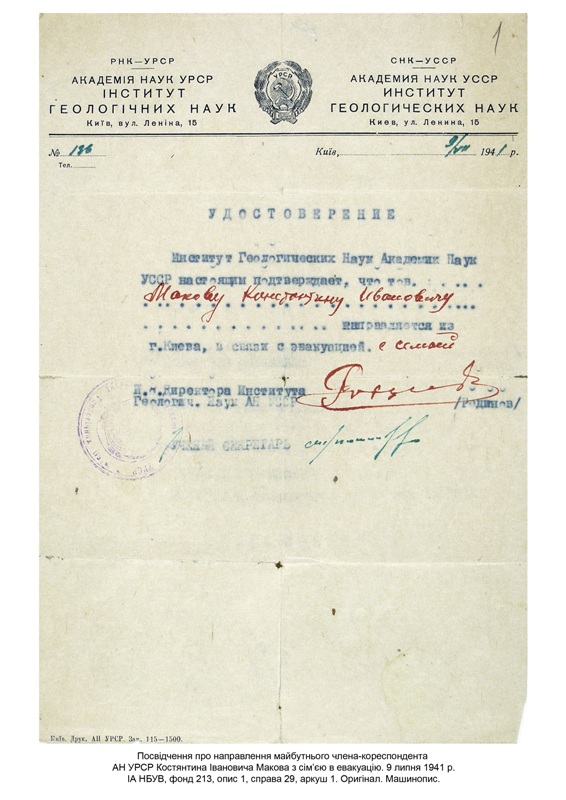 1
РНК—УРСР
АКАДЕМІЯ НАУК УРСР
ІНСТИТУТ
ГЕОЛОГІЧНИХ НАУК
Київ, вул. Леніна, 15
УРСР
СНК—УССР
АКАДЕМИЯ НАУК УССР
ИНСТИТУТ
ГЕОЛОГИЧЕСКИХ НАУК
Киев, ул. Ленина, 15
№ 136
Тел.
Київ, 9/VII 1941 р.
УДОСТОВЕРЕНИЕ
Институт Геологических Наук Академии Наук
УССР настоящим подтверждает, что тов. . . . . .
Макову Константину Ивановичу
. . . . . . . . . . . . . . направляется из
г.Киева, в связи с эвакуацией. с семьей
И.о.Директора Института
Геологич. Наук АН УССР /Родинов/
УЧЕНЫЙ СЕКРЕТАРЬ
Київ. Друк. АН УРСР. Зам. 115—1500.
Посвідчення про направлення майбутнього члена-кореспондента
АН УРСР Костянтина Івановича Макова з сім’єю в евакуацію. 9 липня 1941 р.
ІА НБУВ, фонд 213, опис 1, справа 29, аркуш 1. Оригінал. Машинопис.